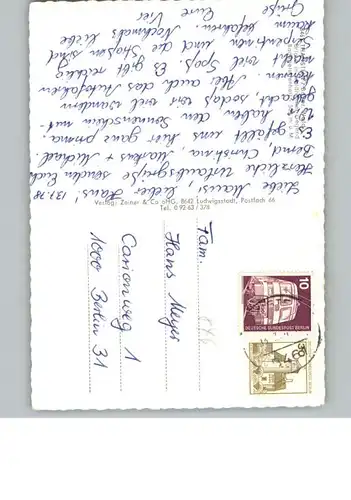 Liebe Mausi, lieber Hans! 13.1.78
Herzliche Urlaubsgrüße senden Euch
Bernd, Christina, Markus + Michael.
Es gefällt uns hier ganz prima.
Wir haben den Sonnenschein mit-
gebracht, sodaß wir viel wandern
können. Aber auch das Autofahren
macht viel Spaß. Es gibt reichlich
Serpentinen und die Straßen sind
kaum befahren. Nochmals liebe
Grüße Eure
Verlag: Zeiner & Co oHG, 8642 Ludwigsstadt, Postfach 66
Tel. 0 92 63 / 378
Fam.
Hans Meyer
Carionweg 1
1000 Berlin 31
10
DEUTSCHE BUNDESPOST BERLIN
30